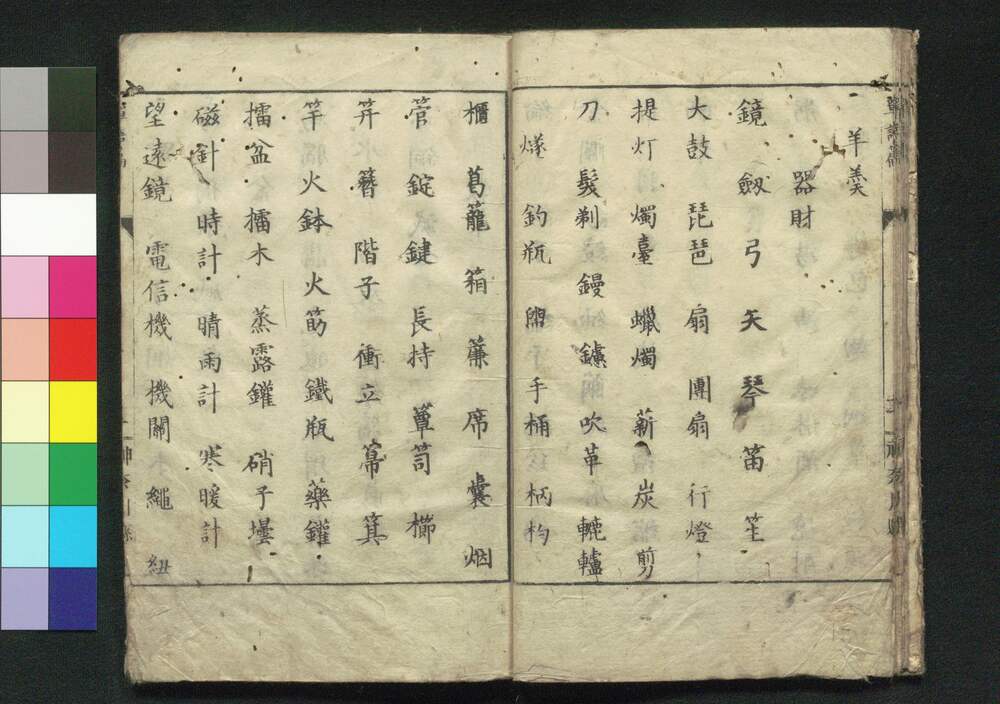 羊羹
器財
鏡 劔 弓 矢 琴 笛 笙
大鼓 琵琶 扇 團扇 行燈
提灯 燭臺 蠟燭 薪 炭 剪
刀 髪剃 鏝 鑢 吹革 轆轤
燧 釣瓶 盥 手桶 柄杓
櫃 葛籠 箱 簾 席 囊 烟
管 錠 鍵 長持 簞笥 櫛
笄 簪 階子 衝立 帚 箕
竿 火鉢 火筯 鐵瓶 藥鑵
擂盆 擂木 蒸露鑵 硝子壜
磁針 時計 晴雨計 寒暖計
望遠鏡 電信機 機關 繩 紐